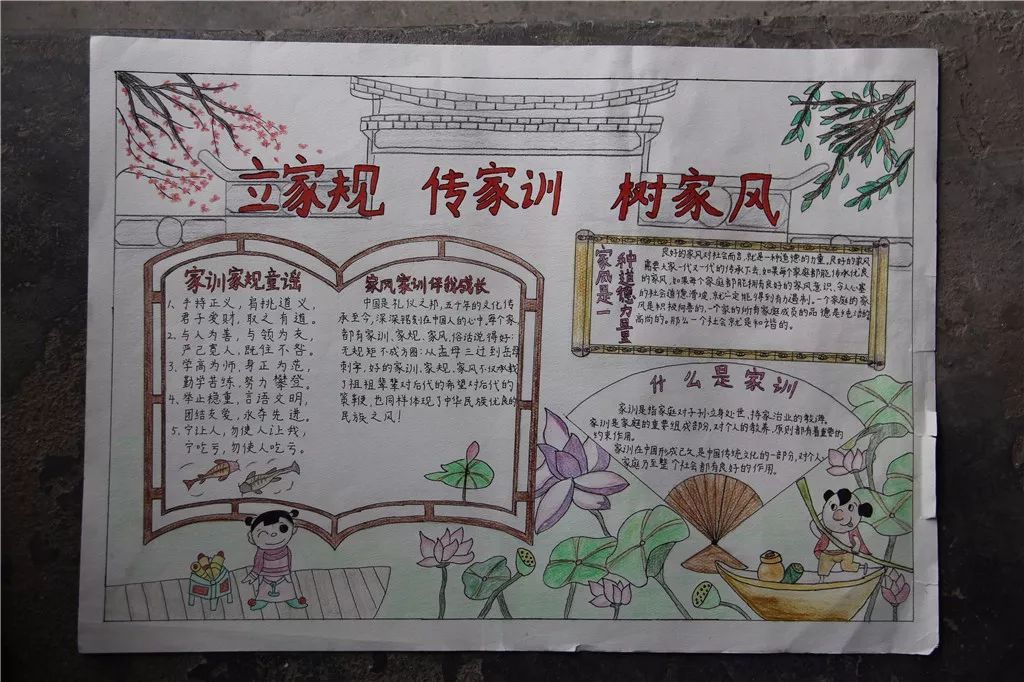 立家规 传家训 树家风
家训家规童谣
1、手持正义,肩挑道义
君子爱财,取之有道。
2、与人为善,与领为友,
严己宽人,既往不咎。
3、学高为师,身正为范,
勤学苦练,努力攀登。
4、举止稳重,言语文明,
团结友爱,永夺先进。
5、宁让人,勿使人让我,
宁吃亏,勿使人吃亏。
家风家训伴我成长
中国是礼仪之邦,五千年的文化传
承至今,深深锡刻在中国人的心中。每个家
都有家训、家规、家风,俗话说得好:
无规矩不成方圆:从孟母三迁到岳母
刺字,好的家训、家规、家风不仅承载
了祖祖辈辈对后代的希望对后代的
策鞭,也同样体现了中华民族优良的
民族之风!
家风是一
种道德力量
良好的家风对社会而言,就是一种道德的力量,良好的家风
需要大家一代又一代的传承下去,如果每个家庭都能传承优良
的家风,如果每个家庭都能拥有良好的家风意识,令人心塞
的社会道德滑坡,就一定能得到有力遏制。一个家庭的家
风是积极向善的,一个家的所有家庭成员的品德是纯洁的
高尚的。那么一个社会就是和谐的。
什么是家训
家训是指家庭对子孙立身处世、持家治业的教诲。
家训是家庭的重要组成部分,对个人的教养、原则都有着重要的
约束作用。
家训在中国形成已久,是中国传统文化的一部分,对个人
家庭乃至整个社会都有良好的作用。